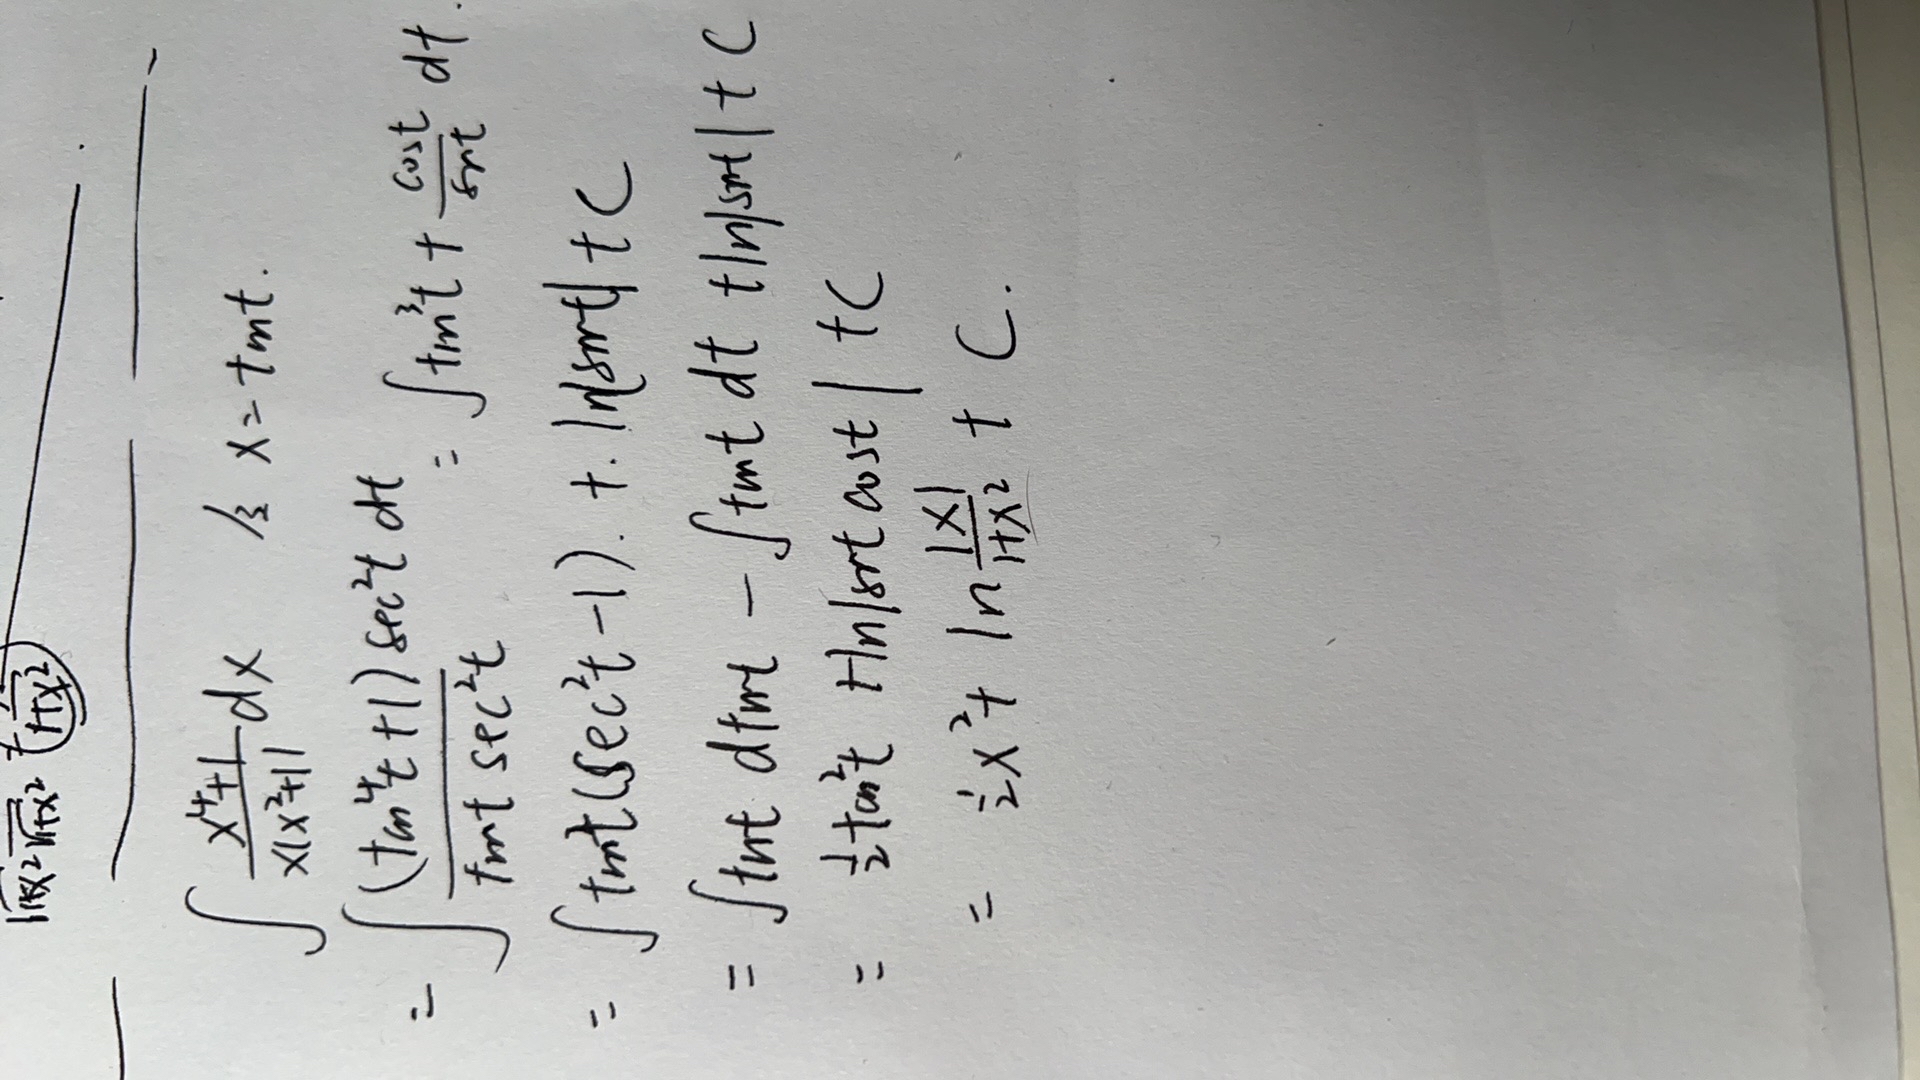 ∫ (x⁴+1)/(x(x²+1)) dx 令 x = tant.
= ∫ (tan⁴t+1) sec²t dt / (tant sec²t) = ∫ tan³t + cost/sint dt.
= ∫ tant(sec²t-1). + . ln|sint| + C
= ∫ tant dtant - ∫ tant dt + ln|sint| + C
= ½ tan²t + ln|sint cost| + C
= ½ x² + ln |x|/(1+x²) + C.